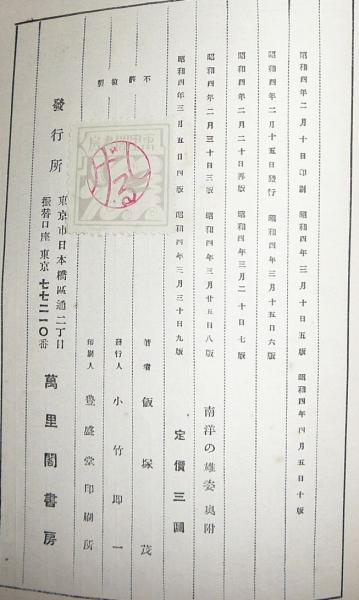 昭和四年二月十日印刷 昭和四年三月十日五版 昭和四年四月五日十版
昭和四年二月十五日發行 昭和四年三月十五日六版
昭和四年二月二十日再版 昭和四年三月二十日七版
昭和四年二月三十日三版 昭和四年三月廿五日八版 南洋の雄姿奥附
昭和四年三月五日四版 昭和四年三月三十日九版 定價三圓
不許複製
著者 飯塚茂
發行人 小竹即一
印刷人 豊盛堂印刷所
發行所 東京市日本橋區通二丁目
振替口座東京七七二一〇番 萬里閣書房